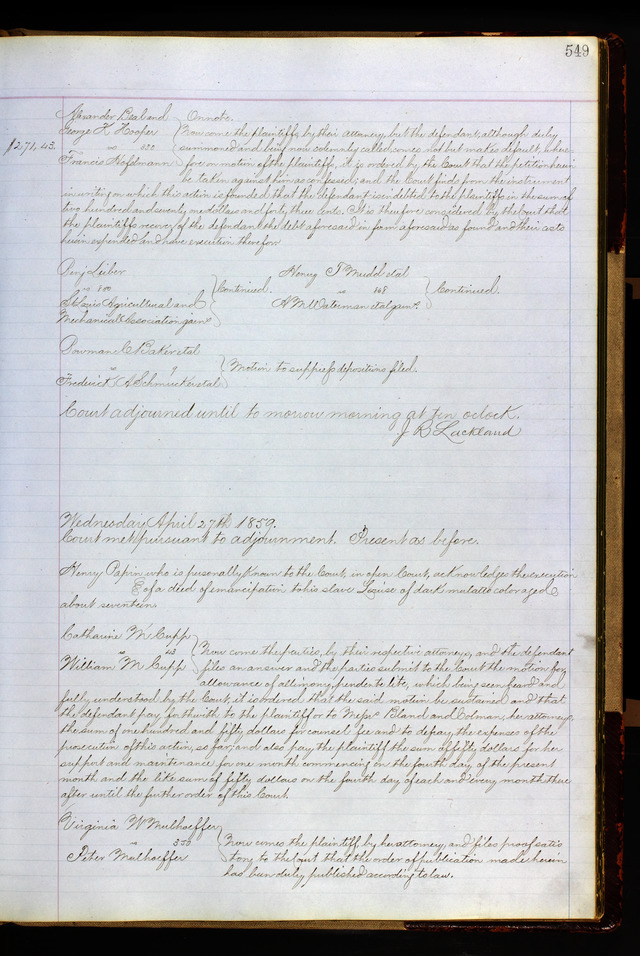 549
Alexander Beal and } On note.
George H. Hooper } Now come the plaintiffs, by their attorney, but the defendant, although duly
$271,43. vs 232 } summoned and being now solemnly called, comes not but makes default, where-
Francis Hoffdmann } fore on motion of the plaintiffs, it is ordered by the Court that the petition herein
be taken against him as confessed; and the Court finds from the instrument
in writing on which this action is founded that the defendant is indebted to the plaintiffs in the sum of
two hundred and seventy one dollars and forty three cents. It is therefore considered by the Court that
the plaintiffs recover of the defendant the debt aforesaid in form aforesaid as found and their costs
herein expended and have execution therefor
Benj Lieber } Henry T. Mudd et al }
vs 100 } Continued. vs 168 } Continued.
St Louis Agricultural and } N M Waterman et al garn.
Mechanical Association garn.
Bowman C Baker et al }
vs } Motion to suppress depositions filed.
Frederick A Schmucker et al
Court adjourned until to morrow morning at Ten oclock.
J R Lackland
Wednesday April 27th 1859.
Court met pursuant to adjournment. Present as before.
Henry Papin who is personally known to the Court, in open Court, acknowledges the execution
of a deed of emancipation to his slave Louise of dark mulatto color aged
about seventeen.
Catharine M Cupp }
vs 43 } Now come the parties, by their respective attorneys, and the defendant
William M Cupp } files an answer and the parties submit to the Court the motion for
allowance of allimony, pendente lite, which being seen, heard and
fully understood by the Court, it is ordered that the said motion be sustained and that
the defendant pay forthwith to the plaintiff or to Messrs Bland and Colman, her attorneys,
the sum of one hundred and fifty dollars for counsel fee and to defray the expenses of the
prosecution of this action, so far; and also pay the plaintiff the sum of fifty dollars for her
support and maintenance for one month commencing on the fourth day of the present
month and the like sum of fifty dollars on the fourth day of each and every month there
after until the further order of this Court.
Virginia W Mulhoeffer }
vs 350 } Now comes the plaintiff, by her attorney, and files proof satis
Peter Mulhoeffer } tory to the Court that the order of publication made herein
has been duly published according to law.